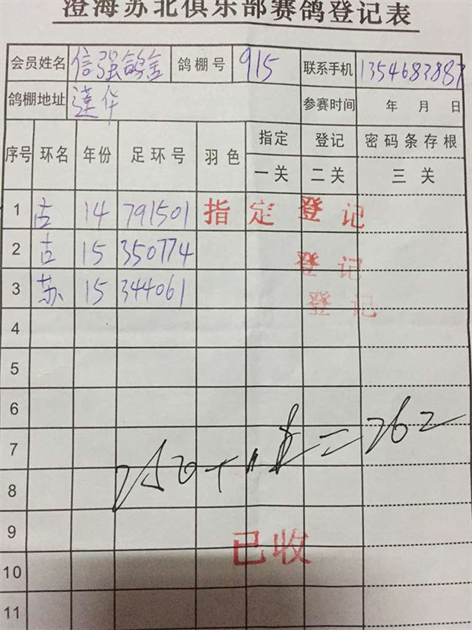 澄海苏北俱乐部赛鸽登记表
会员姓名 信强鸽舍 鸽棚号 915 联系手机 1354683887
鸽棚地址 莲华 参赛时间 年 月 日
序号 环名 年份 足环号 羽色 指定 登记 密码条存根
一关 二关 三关
1 吉 14 791501 指定 登记
2 吉 15 350774 登记
3 苏 15 344061 登记
4
5
6
7
8
250+ =262
9
已收
10
11